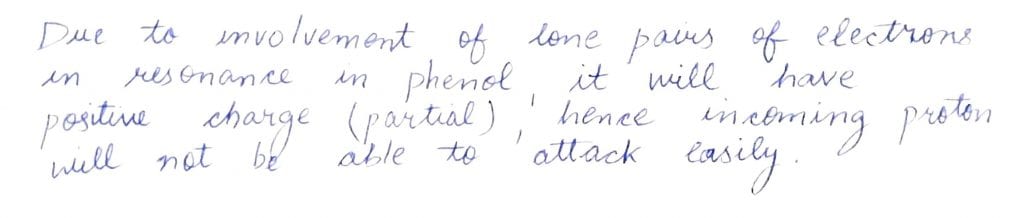 Due to involvement of lone pairs of electrons
in resonance in phenol, it will have
positive charge (partial), hence incoming proton
will not be able to attack easily.